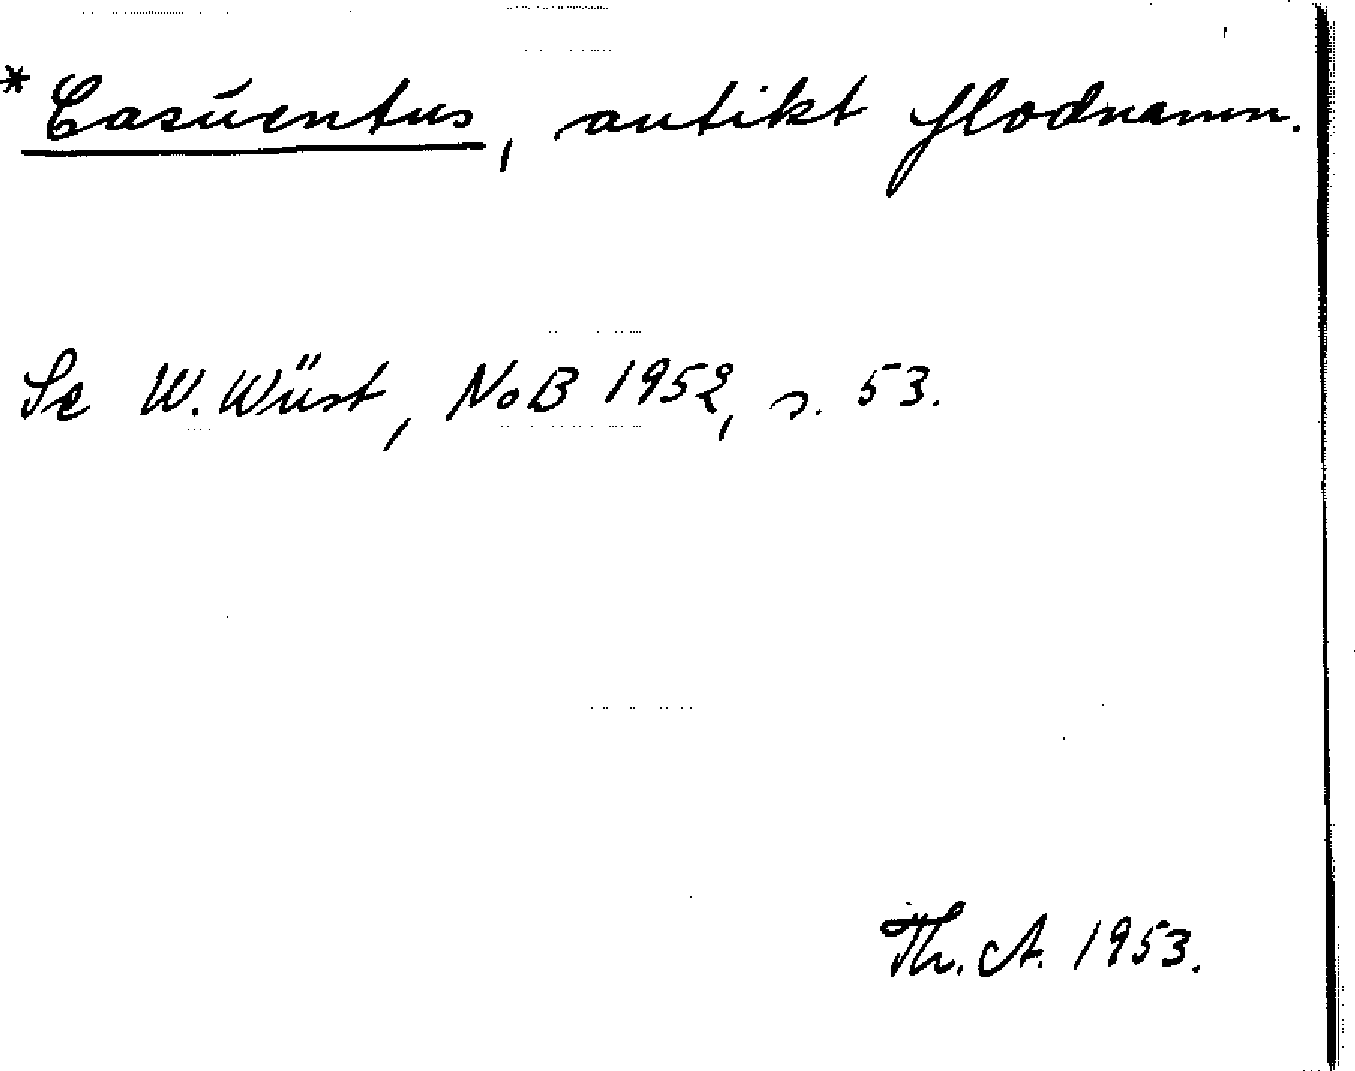 * Casúentus, antikt flodnamn.
Se W. Wüst, NoB 1952, s. 53.
Th. A. 1953.